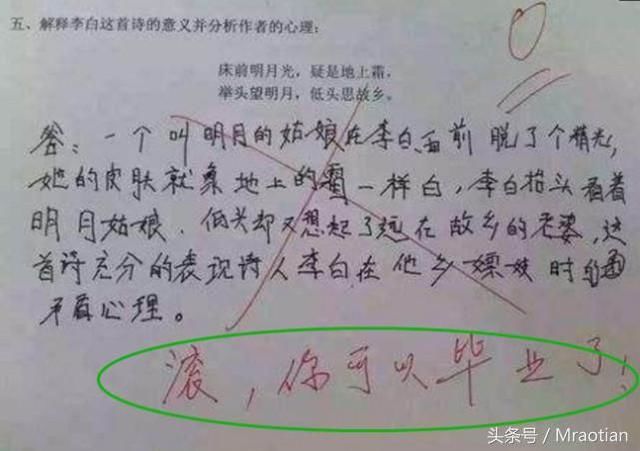 五、解释李白这首诗的意义并分析作者的心理:
床前明月光，疑是地上霜。
举头望明月，低头思故乡。
答：一个叫明月的姑娘在李白面前脱了个精光，
她的皮肤就象地上的霜一样白，李白抬头看着
明月姑娘，低头却又想起了远在故乡的老婆，这
首诗充分的表现诗人李白在他乡嫖妓时的
矛盾心理。
0
滚，你可以毕业了！
头条号 / Mraotian